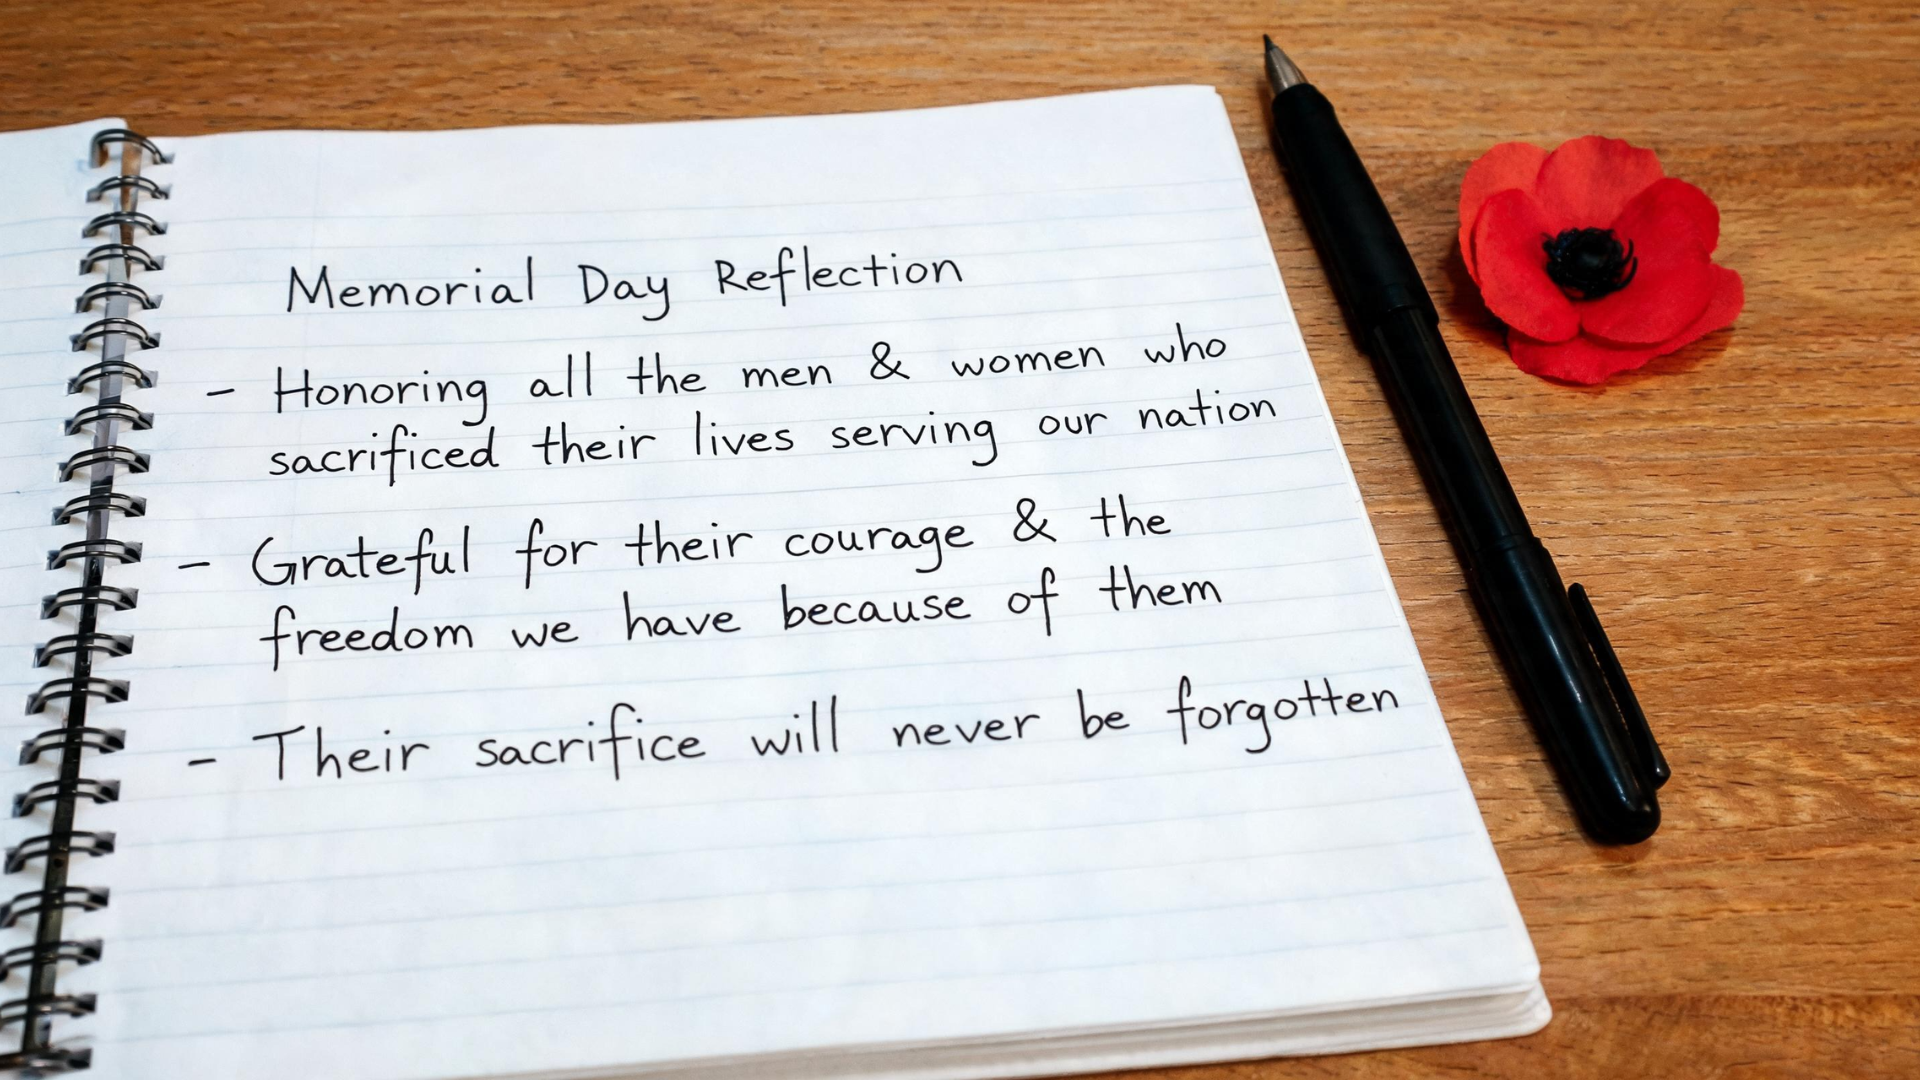 Memorial Day Reflection
- Honoring all the men & women who
sacrificed their lives serving our nation
- Grateful for their courage & the
freedom we have because of them
- Their sacrifice will never be forgotten